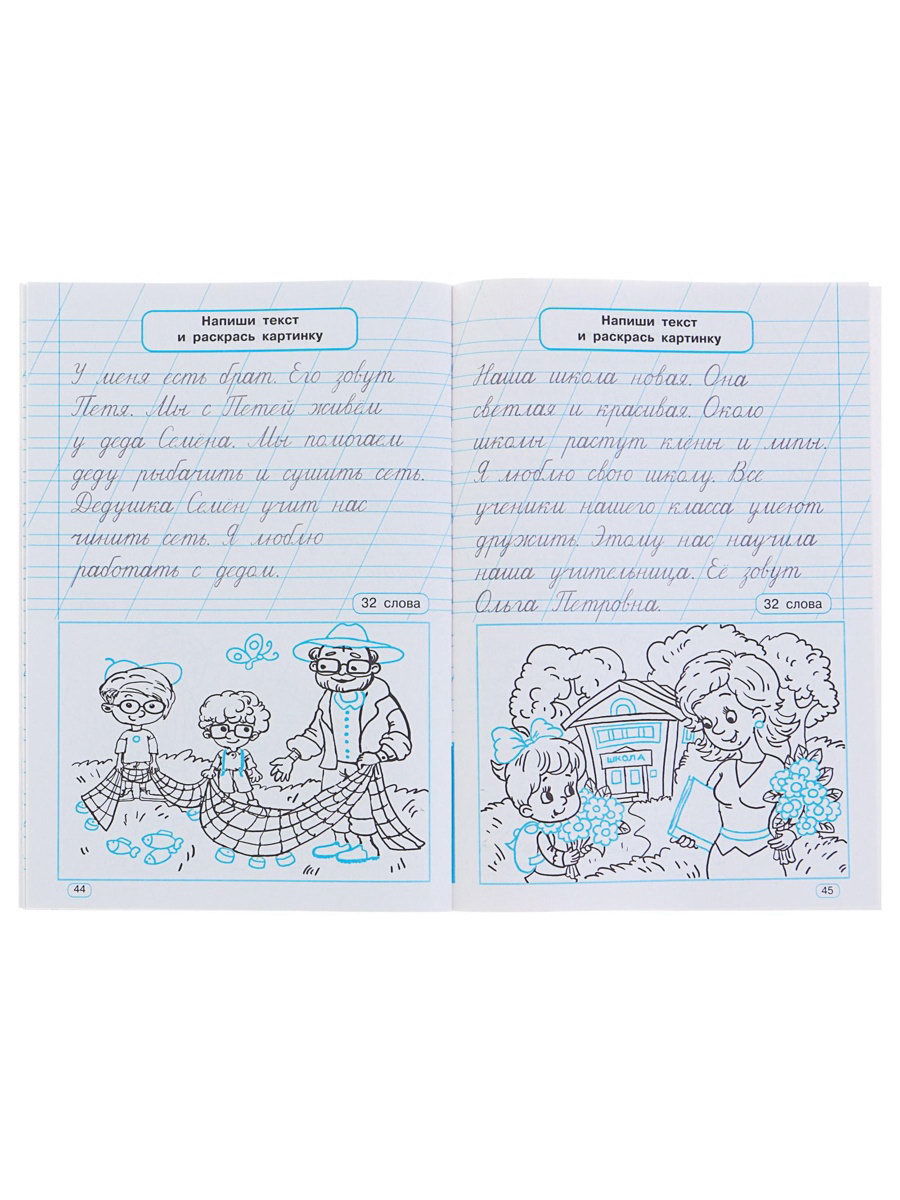 Напиши текст
и раскрась картинку
У меня есть брат. Его зовут
Петя. Мы с Петей живём
у деда Семёна. Мы помогаем
деду рыбачить и сушить сеть.
Дедушка Семён учит нас
чинить сеть. Я люблю
работать с дедом.
32 слова
44
Напиши текст
и раскрась картинку
Наша школа новая. Она
светлая и красивая. Около
школы растут клёны и липы.
Я люблю свою школу. Все
ученики нашего класса умеют
дружить. Этому нас научила
наша учительница. Её зовут
Ольга Петровна.
32 слова
ШКОЛА
45